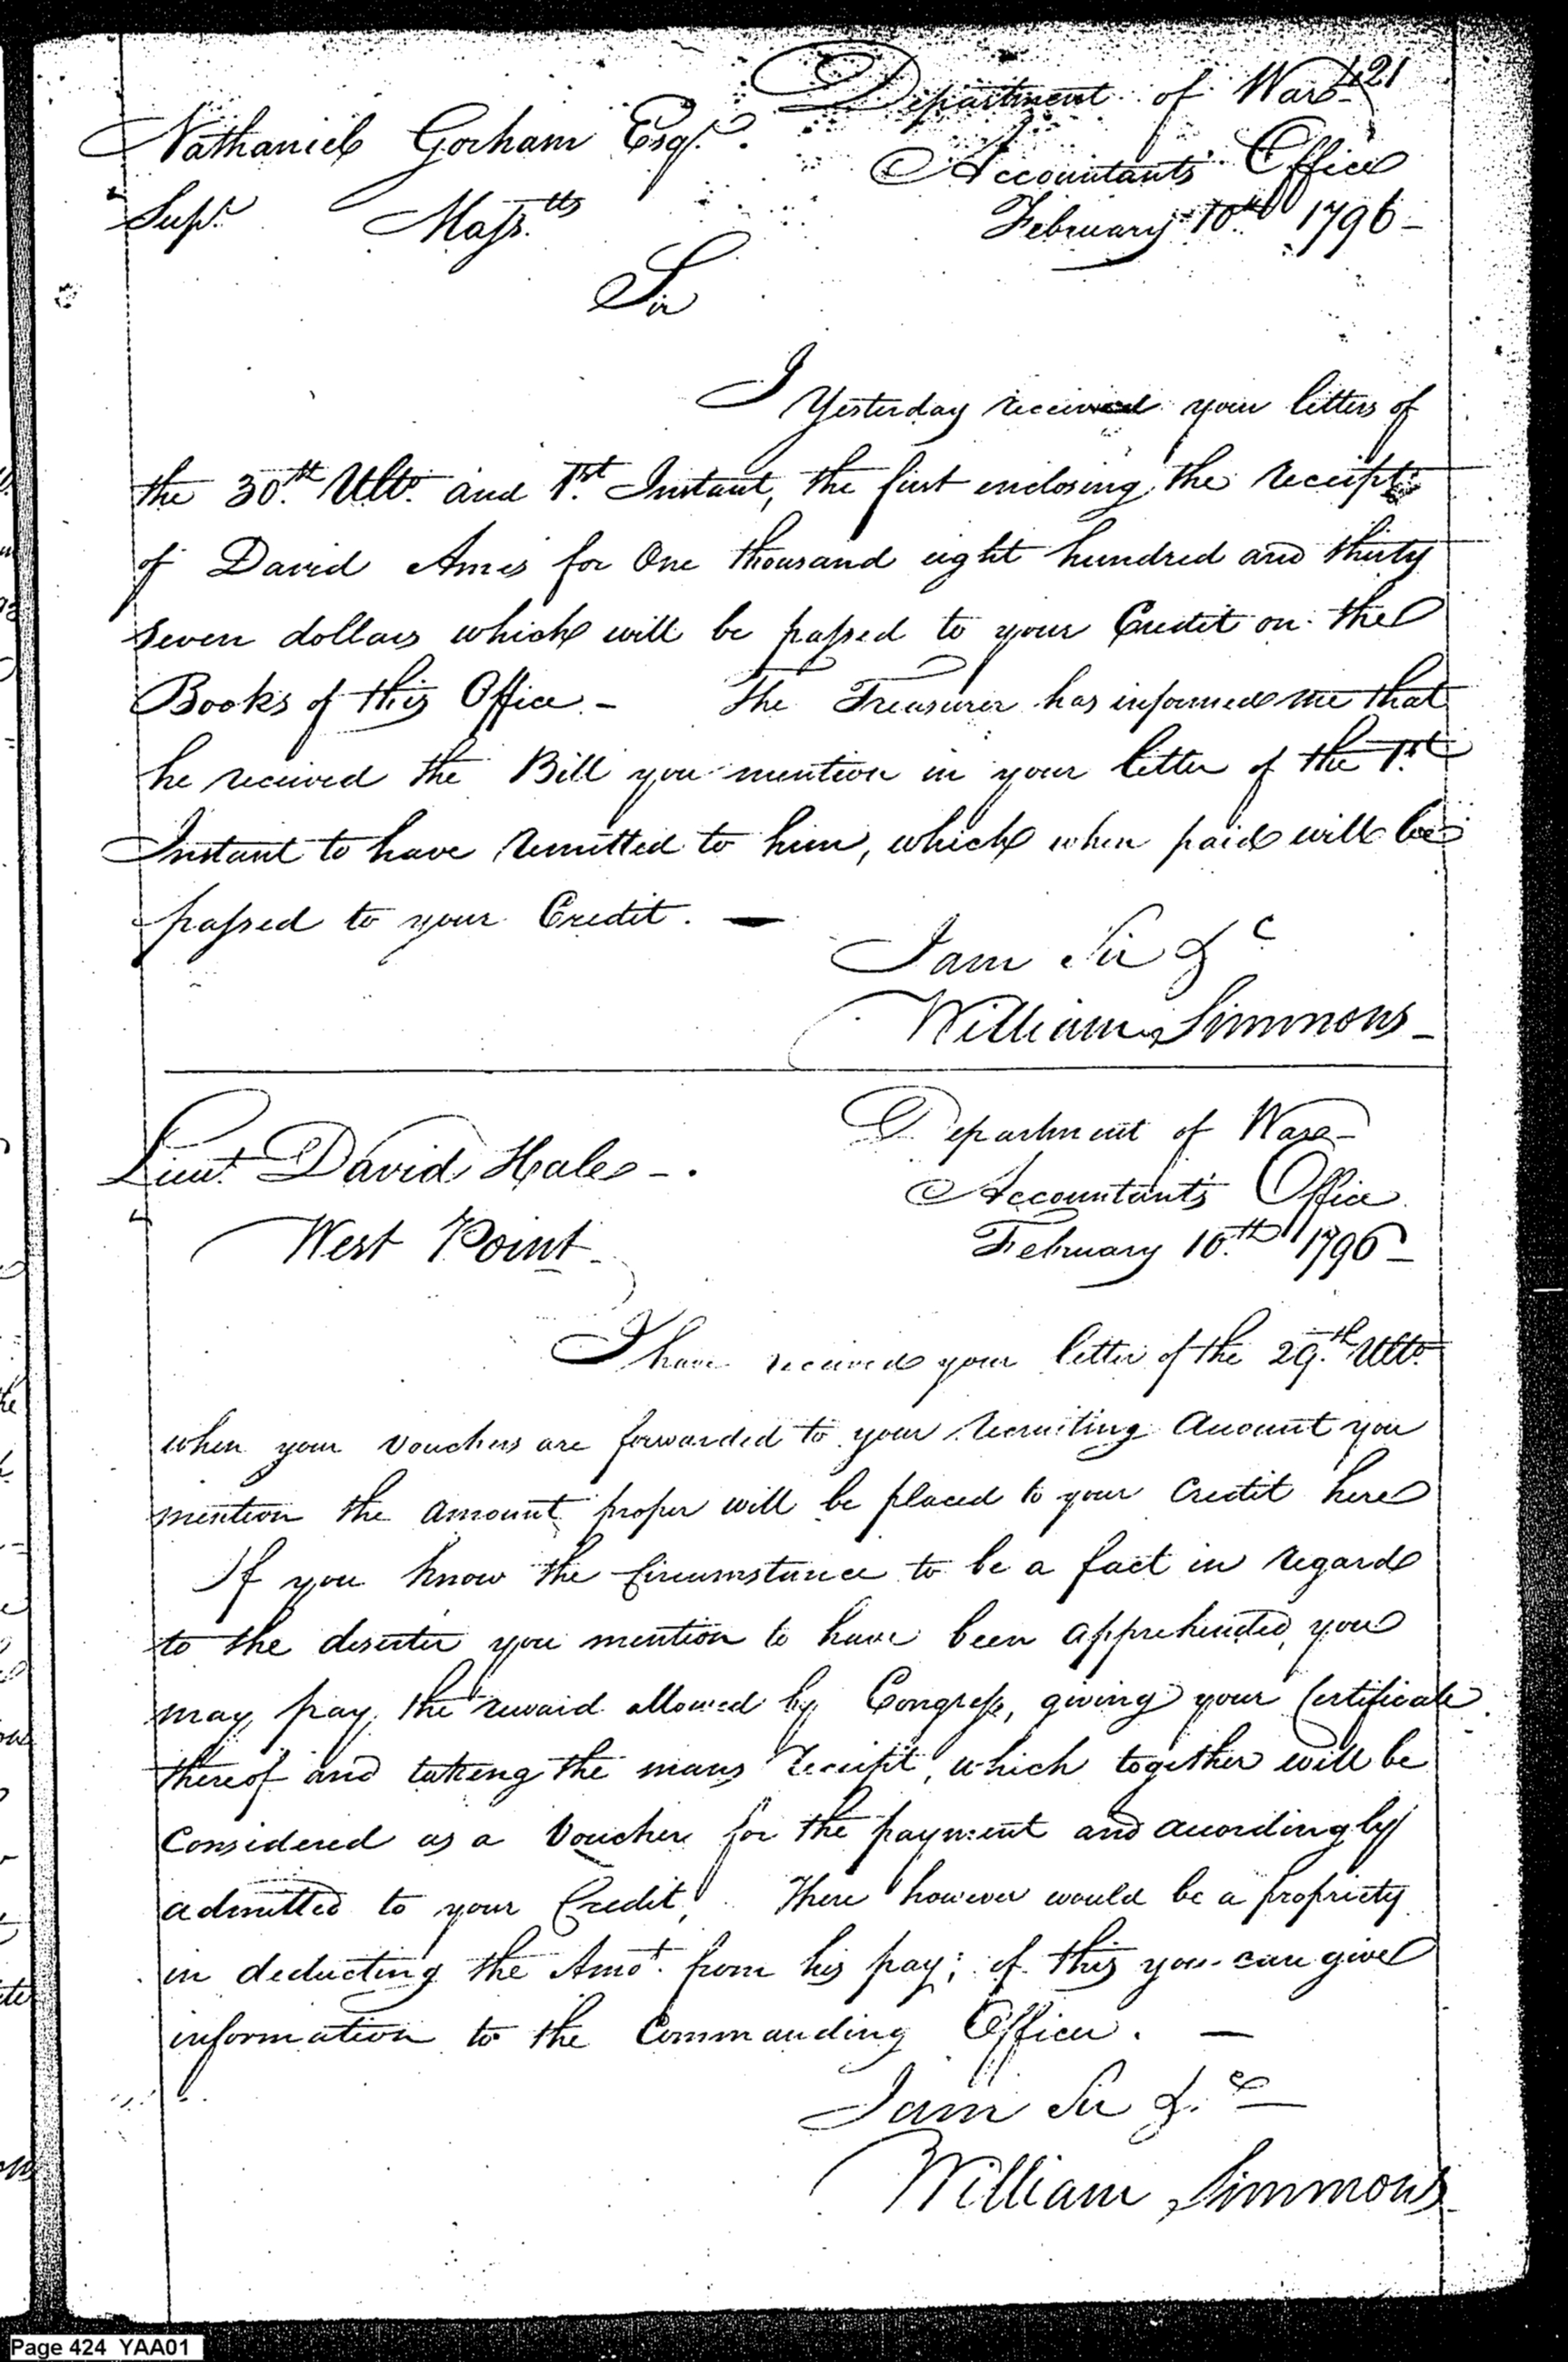 421
Department of War
Nathaniel Gorham Esqr.
Accountants Office
Supr. Massts
February 10th 1796 -
Sir
I Yesterday received your letters of
the 30th Ulto. and 1st Instant, the first enclosing the receipt
of David Ames for One thousand eight hundred and thirty
seven dollars which will be passed to your Credit on the
Books of this Office. - The Treasurer has informed me that
he received the Bill you mention in your letter of the 1st
Instant to have remitted to him, which when paid will be
passed to your Credit. —
I am Sir &c
William Simmons -
Department of War -
Lieut. David Hale - .
Accountant's Office
West Point
February 10th 1796 -
I have received your letter of the 29th Ulto.
when your vouchers are forwarded to your recruiting Account you
mention the amount proper will be placed to your Credit here
If you know the Circumstance to be a fact in regard
to the deserter you mention to have been apprehended, you
may pay the reward allowed by Congress, giving your Certificate
thereof and taking the mans receipt, which together will be
Considered as a Voucher for the payment and accordingly
admitted to your Credit. There however would be a propriety
in deducting the Amot. from his pay; of this you can give
information to the Commanding Officer. —
I am Sir &c
William Simmons
Page 424 YAA01